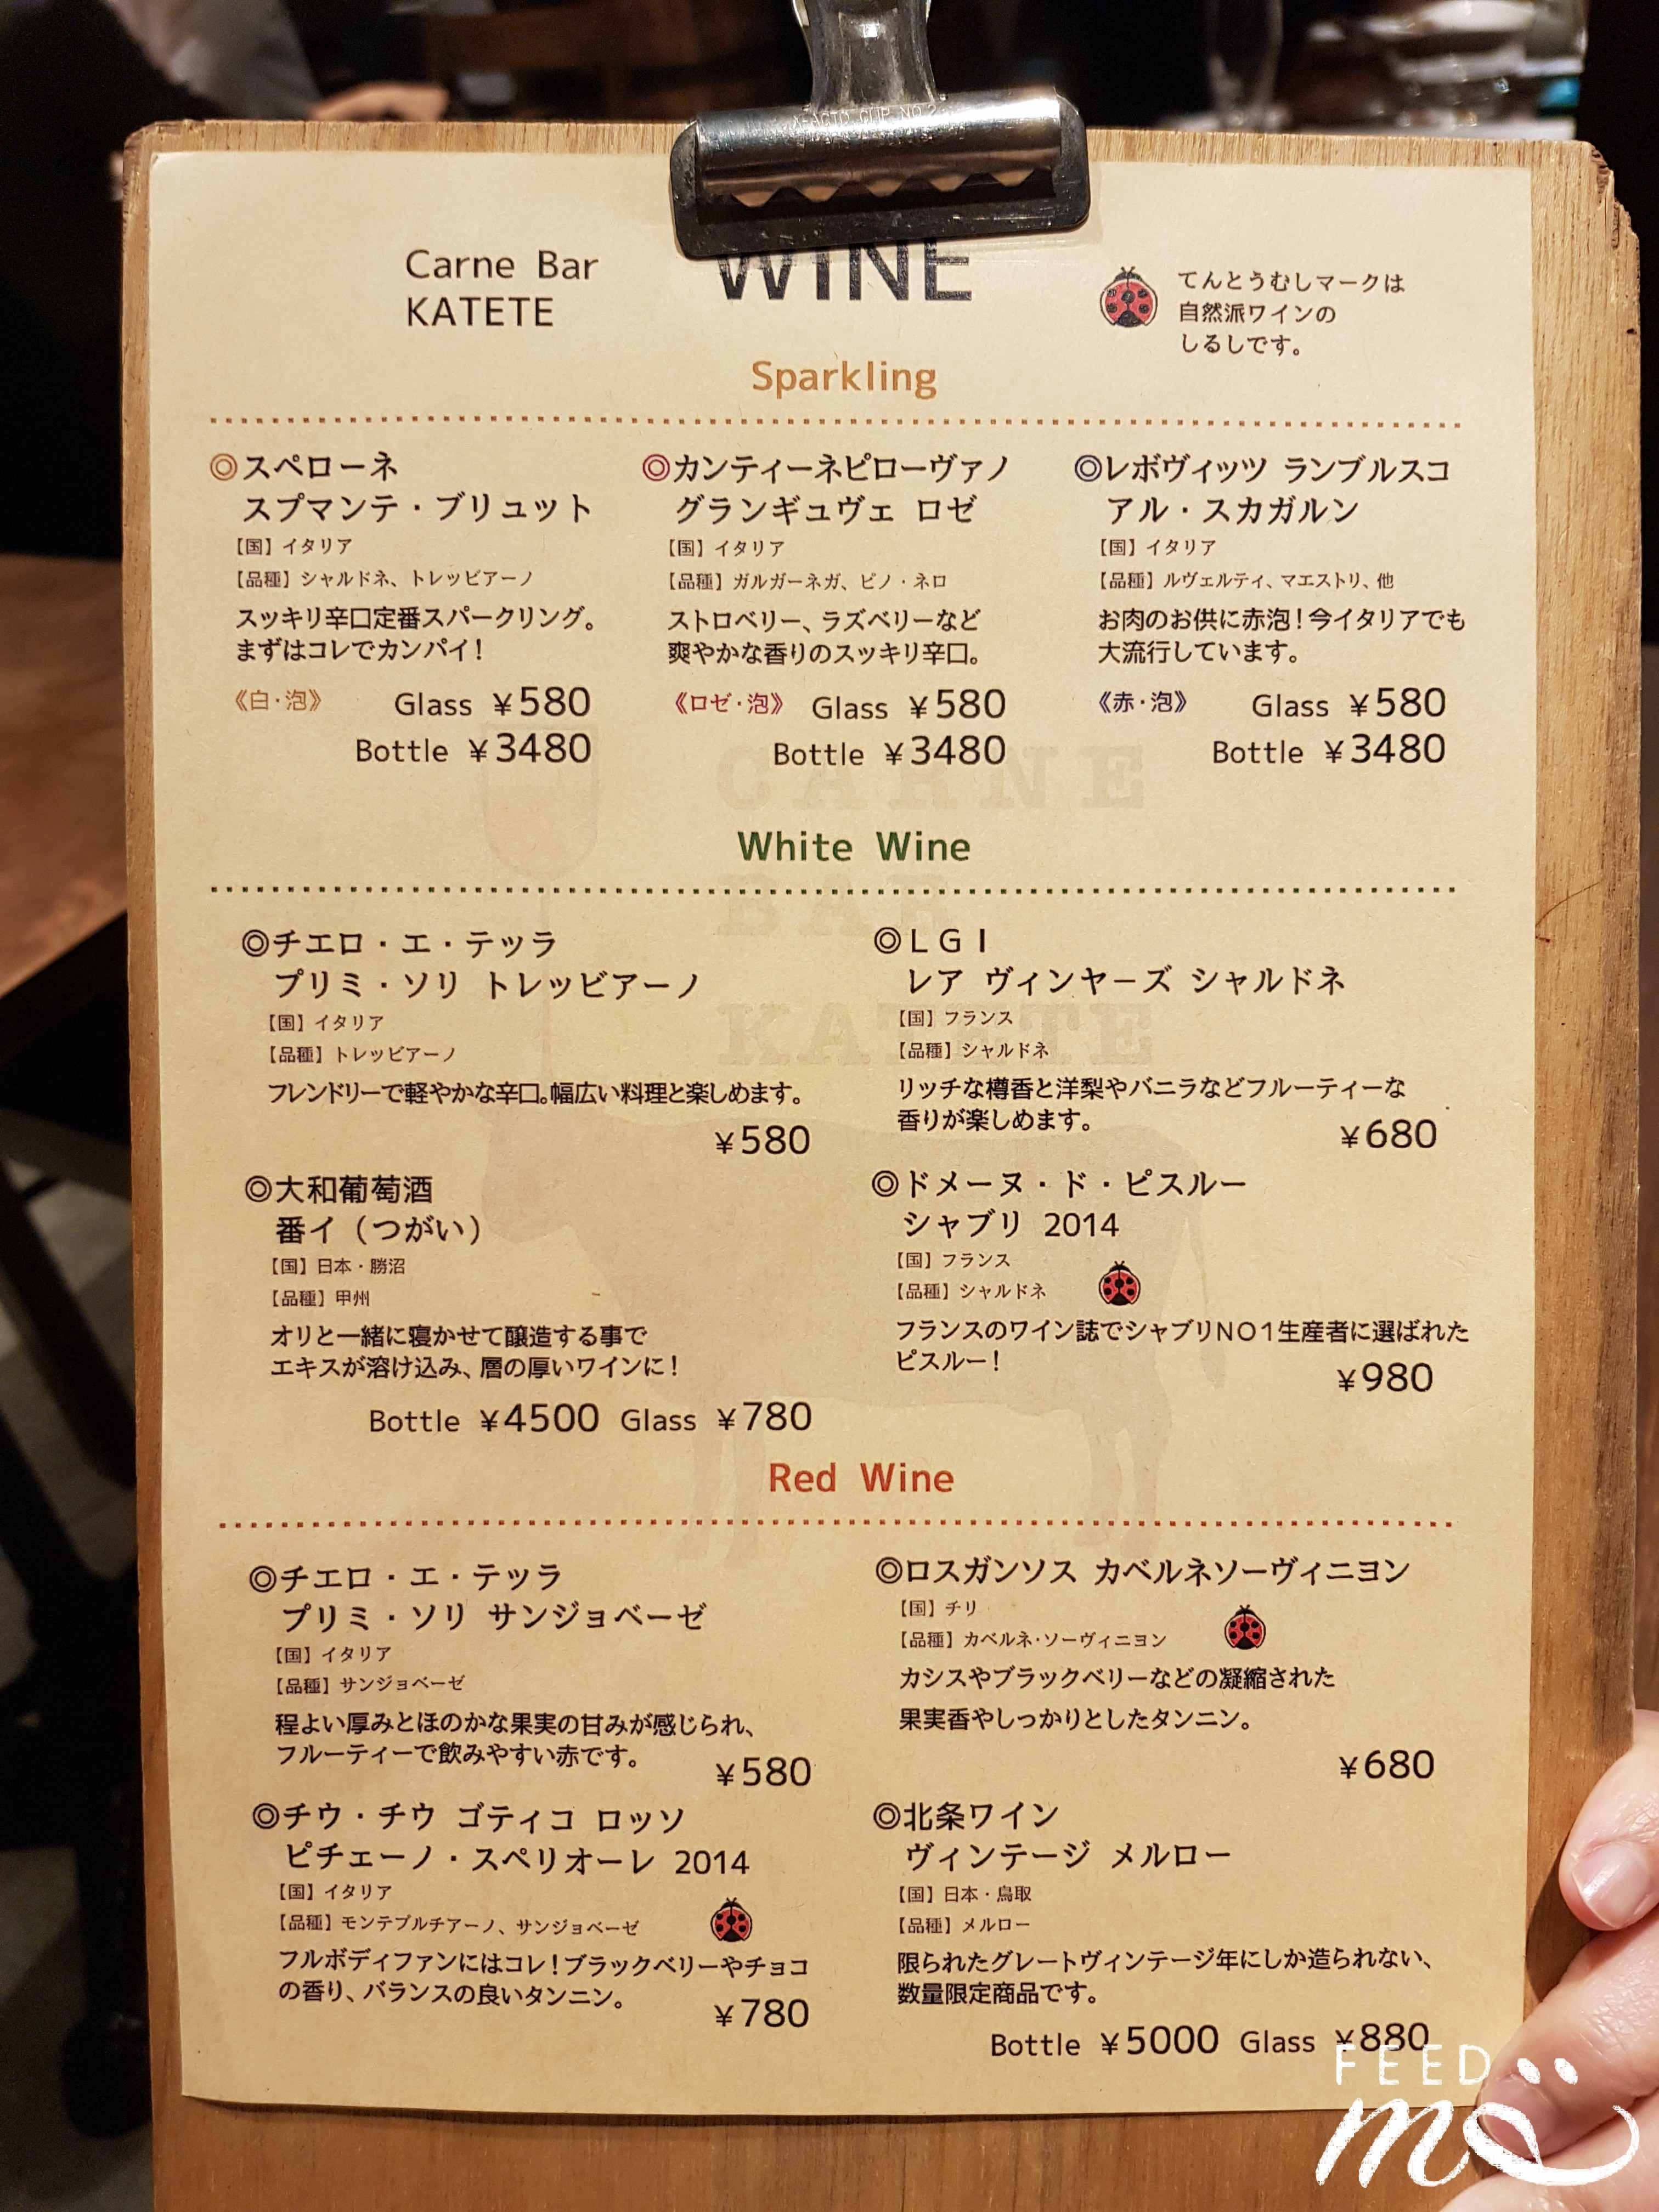 Carne Bar
KATETE
WINE
てんとうむしマークは
自然派ワインの
しるしです。
Sparkling
◎スペローネ
スプマンテ・ブリュット
【国】イタリア
【品種】シャルドネ、トレッビアーノ
スッキリ辛口定番スパークリング。
まずはコレでカンパイ!
《白・泡》 Glass ¥580
Bottle ¥3480
◎カンティーネピローヴァノ
グランギュヴェ ロゼ
【国】イタリア
【品種】ガルガーネガ、ピノ・ネロ
ストロベリー、ラズベリーなど
爽やかな香りのスッキリ辛口。
《ロゼ・泡》 Glass ¥580
Bottle ¥3480
◎レボヴィッツ ランブルスコ
アル・スカガルン
【国】イタリア
【品種】ルヴェルティ、マエストリ、他
お肉のお供に赤泡!今イタリアでも
大流行しています。
《赤・泡》 Glass ¥580
Bottle ¥3480
CARNE
BAR
KATETE
White Wine
◎チエロ・エ・テッラ
プリミ・ソリ トレッビアーノ
【国】イタリア
【品種】トレッビアーノ
フレンドリーで軽やかな辛口。幅広い料理と楽しめます。
¥580
◎LGI
レア ヴィンヤーズ シャルドネ
【国】フランス
【品種】シャルドネ
リッチな樽香と洋梨やバニラなどフルーティーな
香りが楽しめます。
¥680
◎大和葡萄酒
番イ(つがい)
【国】日本・勝沼
【品種】甲州
オリと一緒に寝かせて醸造する事で
エキスが溶け込み、層の厚いワインに!
Bottle ¥4500 Glass ¥780
◎ドメーヌ・ド・ピスルー
シャブリ 2014
【国】フランス
【品種】シャルドネ
フランスのワイン誌でシャブリNO1生産者に選ばれた
ピスルー!
¥980
Red Wine
◎チエロ・エ・テッラ
プリミ・ソリ サンジョベーゼ
【国】イタリア
【品種】サンジョベーゼ
程よい厚みとほのかな果実の甘みが感じられ、
フルーティーで飲みやすい赤です。
¥580
◎ロスガンソス カベルネソーヴィニヨン
【国】チリ
【品種】カベルネ・ソーヴィニヨン
カシスやブラックベリーなどの凝縮された
果実香やしっかりとしたタンニン。
¥680
◎チウ・チウ ゴティコ ロッソ
ピチェーノ・スペリオーレ 2014
【国】イタリア
【品種】モンテプルチアーノ、サンジョベーゼ
フルボディファンにはコレ!ブラックベリーやチョコ
の香り、バランスの良いタンニン。
¥780
◎北条ワイン
ヴィンテージ メルロー
【国】日本・鳥取
【品種】メルロー
限られたグレートヴィンテージ年にしか造られない、
数量限定商品です。
Bottle ¥5000 Glass ¥880
FEED
me